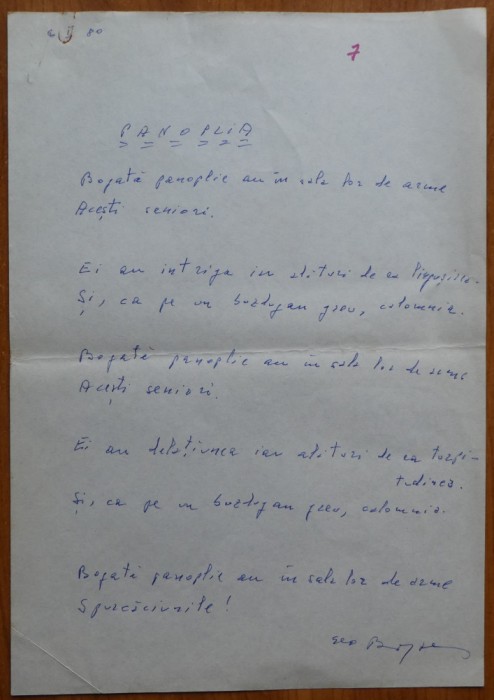 6 II 80
7
PANOPLIA
Bogată panoplie au în sala lor de arme
Acești seniori.
Ei au intriga iar alături de ea
Și, ca pe un buzdugan greu, calomnia.
Bogată panoplie au în sala lor de arme
Acești seniori.
Ei au delațiunea iar alături de ea turpi-
tudinea.
Și, ca pe un buzdugan greu, calomnia.
Bogată panoplie au în sala lor de arme
Spurcăciunile!
Geo Bogza